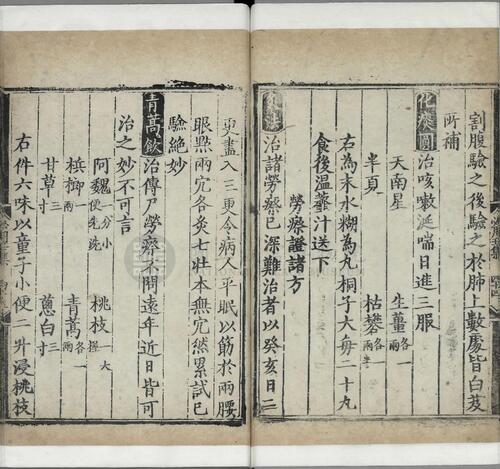 割腹驗之後驗之於肺上數處皆白芨
所補
化痰圓 治咳嗽涎喘日進三服
天南星 生薑各一兩
半夏 枯礬各半兩
右為末水糊為丸桐子大每二十丸
食後溫虀汁送下
勞瘵證諸方
灸法 治諸勞瘵已深難治者以癸亥日二
更盡入三更令病人平眠以筋於兩腰
眼點兩穴各灸七壯本無穴然累試已
驗絕妙
青蒿飲 治傳尸勞瘵不問遠年近日皆可
治之妙不可言
阿魏一分小便先洗 桃枝一大握
檳榔三兩 青蒿各一兩
甘草三寸 蔥白寸
右件六味以童子小便二升浸桃枝